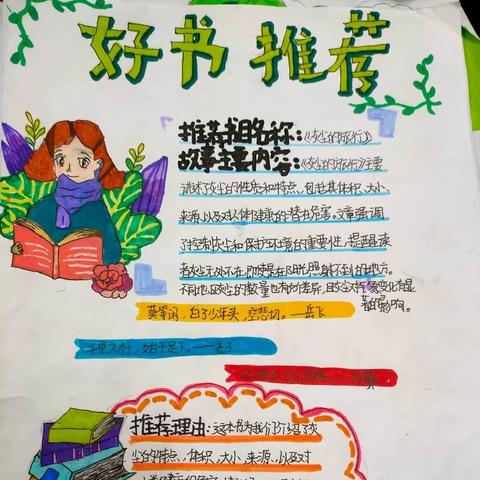 好书推荐
推荐书目名称：《灰尘的旅行》
故事主要内容：《灰尘的旅行》主要
讲述了灰尘的性质和特点，包括其体积、大小、
来源以及对人体健康的潜在危害。文章强调
了控制灰尘和保护环境的重要性，提醒读
者灰尘无处不在，即使是在阳光照射不到的地方。
不同地区灰尘的数量也有所差异，且灰尘对气象变化有显
著的影响。
莫等闲，白了少年头，空悲切。——岳飞
千里之行，始于足下。——老子
推荐理由：这本书为我们介绍了灰
尘的特点，体积，大小，来源，以及对